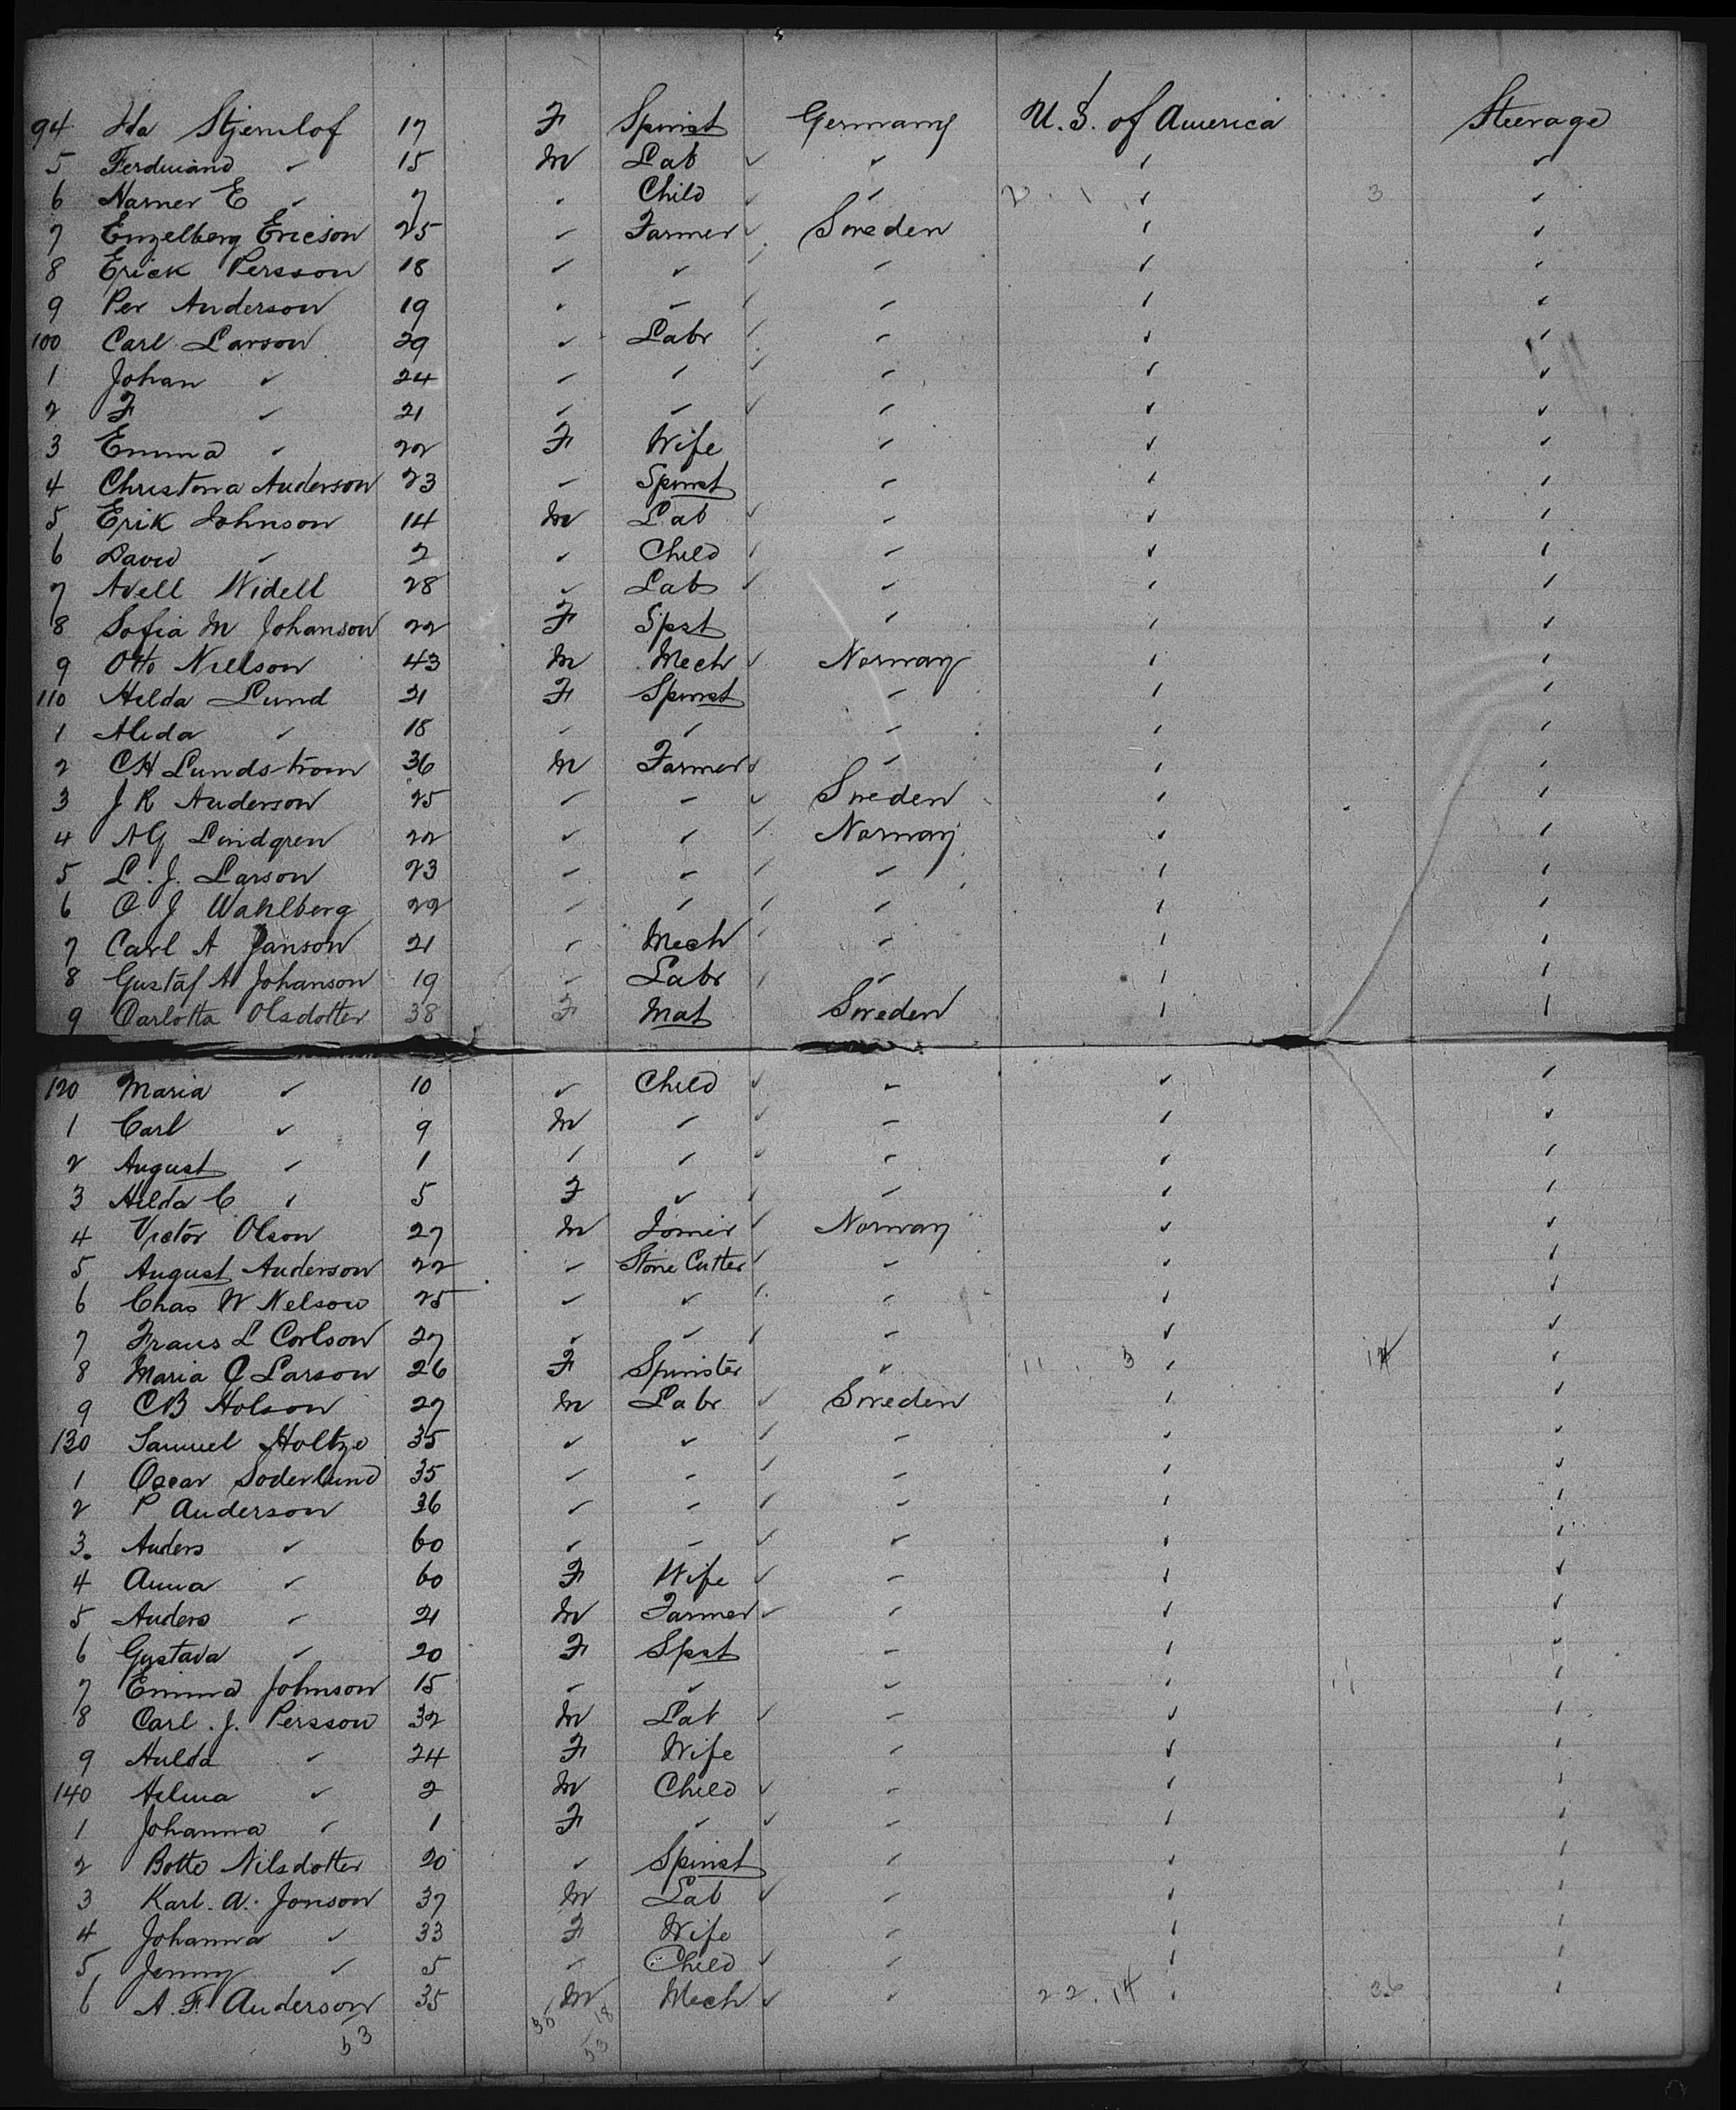 94 Ida Stjernlof 17 F Spinst Germany U.S. of America Steerage
5 Ferdinand " 15 M Lab " " "
6 Narner E " 7 " Child " " 3 "
7 Engelberg Ericson 25 " Farmer Sweden " "
8 Erick Persson 18 " " " " "
9 Per Anderson 19 " " " " "
100 Carl Larson 29 " Labr " " "
1 Johan " 24 " " " " "
2 F " 21 " " " " "
3 Emma " 22 F Wife " " "
4 Christina Anderson 23 " Spinst " " "
5 Erik Johnson 14 M Lab " " "
6 David " 2 " Child " " "
7 Axell Widell 28 " Lab " " "
8 Sofia M Johanson 22 F Spst " " "
9 Otto Nielson 43 M Mech Norway " "
110 Hilda Lund 21 F Spinst " " "
1 Alida " 18 " " " " "
2 CH Lundstrom 36 M Farmer " " "
3 J R Anderson 25 " " Sweden " "
4 AG Lindgren 22 " " Norway " "
5 L. J. Larson 23 " " " " "
6 C J Wahlberg 22 " " " " "
7 Carl A Janson 21 " Mech " " "
8 Gustaf A Johanson 19 " Labr " " "
9 Carlotta Olsdotter 38 F Mat Sweden " "
120 Maria " 10 " Child " " "
1 Carl " 9 M " " " "
2 August " 1 " " " " "
3 Hilda C " 5 F " " " "
4 Victor Olson 27 M Joiner Norway " "
5 August Anderson 22 " Stone Cutter " " "
6 Chas W Nelson 25 " " " " "
7 Frans L Carlson 27 " " " " "
8 Maria C Larson 26 F Spinster " 11 . 3 " 14 "
9 CB Holson 27 M Labr Sweden " "
130 Samuel Holtze 35 " " " " "
1 Oscar Soderlund 35 " " " " "
2 P Anderson 36 " " " " "
3. Anders " 60 " " " " "
4 Anna " 60 F Wife " " "
5 Anders " 21 M Farmer " " "
6 Gustava " 20 F Spst " " "
7 Emma Johnson 15 " " " " "
8 Carl. J. Persson 32 M Lab " " "
9 Hulda " 24 F Wife " " "
140 Helma " 2 M Child " " "
1 Johanna " 1 F " " " "
2 Botte Nilsdotter 20 " Spinst " " "
3 Karl. A. Jonson 37 M Lab " " "
4 Johanna " 33 F Wife " " "
5 Jenny " 5 " Child " " "
6 A. F. Anderson 35 M Mech " 22. 14 " 36 "
53 35 18
53